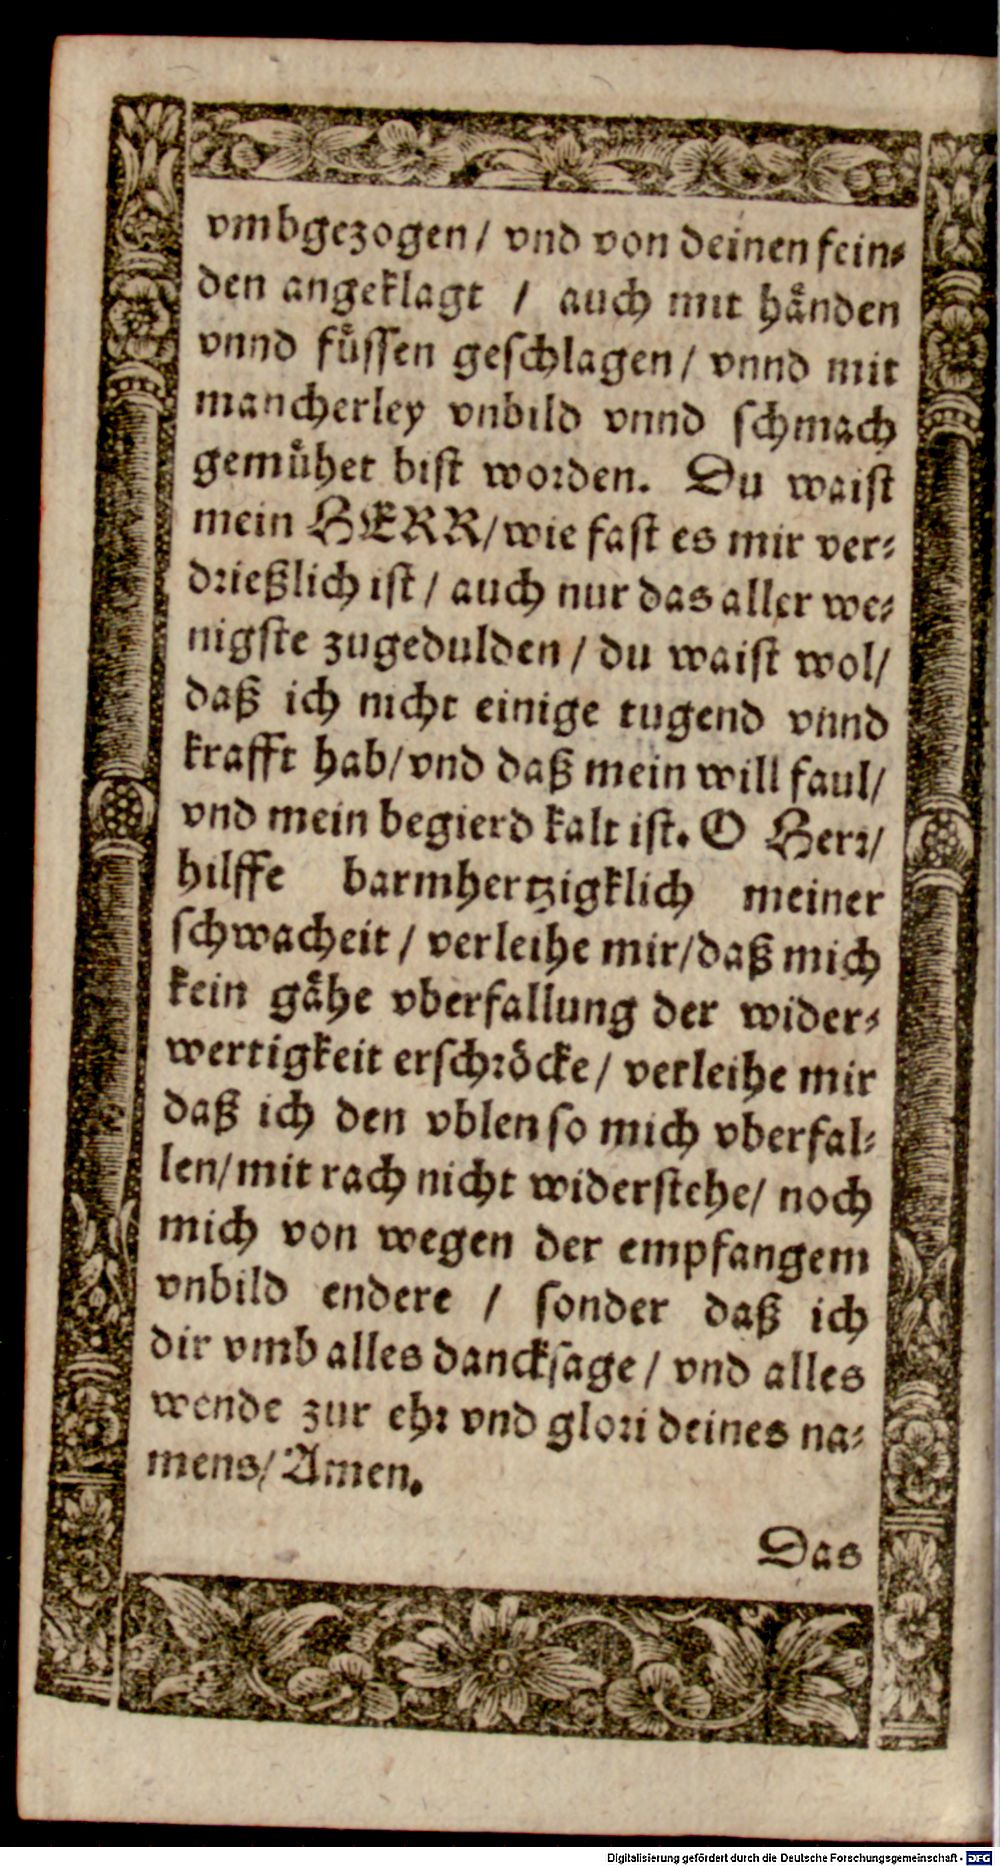 vmbgezogen / vnd von deinen fein⸗
den angeklagt / auch mit haͤnden
vnnd fuͤssen geschlagen / vnnd mit
mancherley vnbild vnnd schmach
gemuͤhet bist worden. Du waist
mein HERR/ wie fast es mir ver⸗
drießlich ist / auch nur das aller we⸗
nigste zugedulden / du waist wol/
daß ich nicht einige tugend vnnd
krafft hab/ vnd daß mein will faul/
vnd mein begierd kalt ist. O Herr/
hilffe barmhertzigklich meiner
schwacheit / verleihe mir/ daß mich
kein gaͤhe vberfallung der wider⸗
wertigkeit erschroͤcke / verleihe mir
daß ich den vblen so mich vberfal⸗
len/ mit rach nicht widerstehe/ noch
mich von wegen der empfangem
vnbild endere / sonder daß ich
dir vmb alles dancksage / vnd alles
wende zur ehr vnd glori deines na⸗
mens/ Amen.
Das
Digitalisierung gefördert durch die Deutsche Forschungsgemeinschaft - DFG